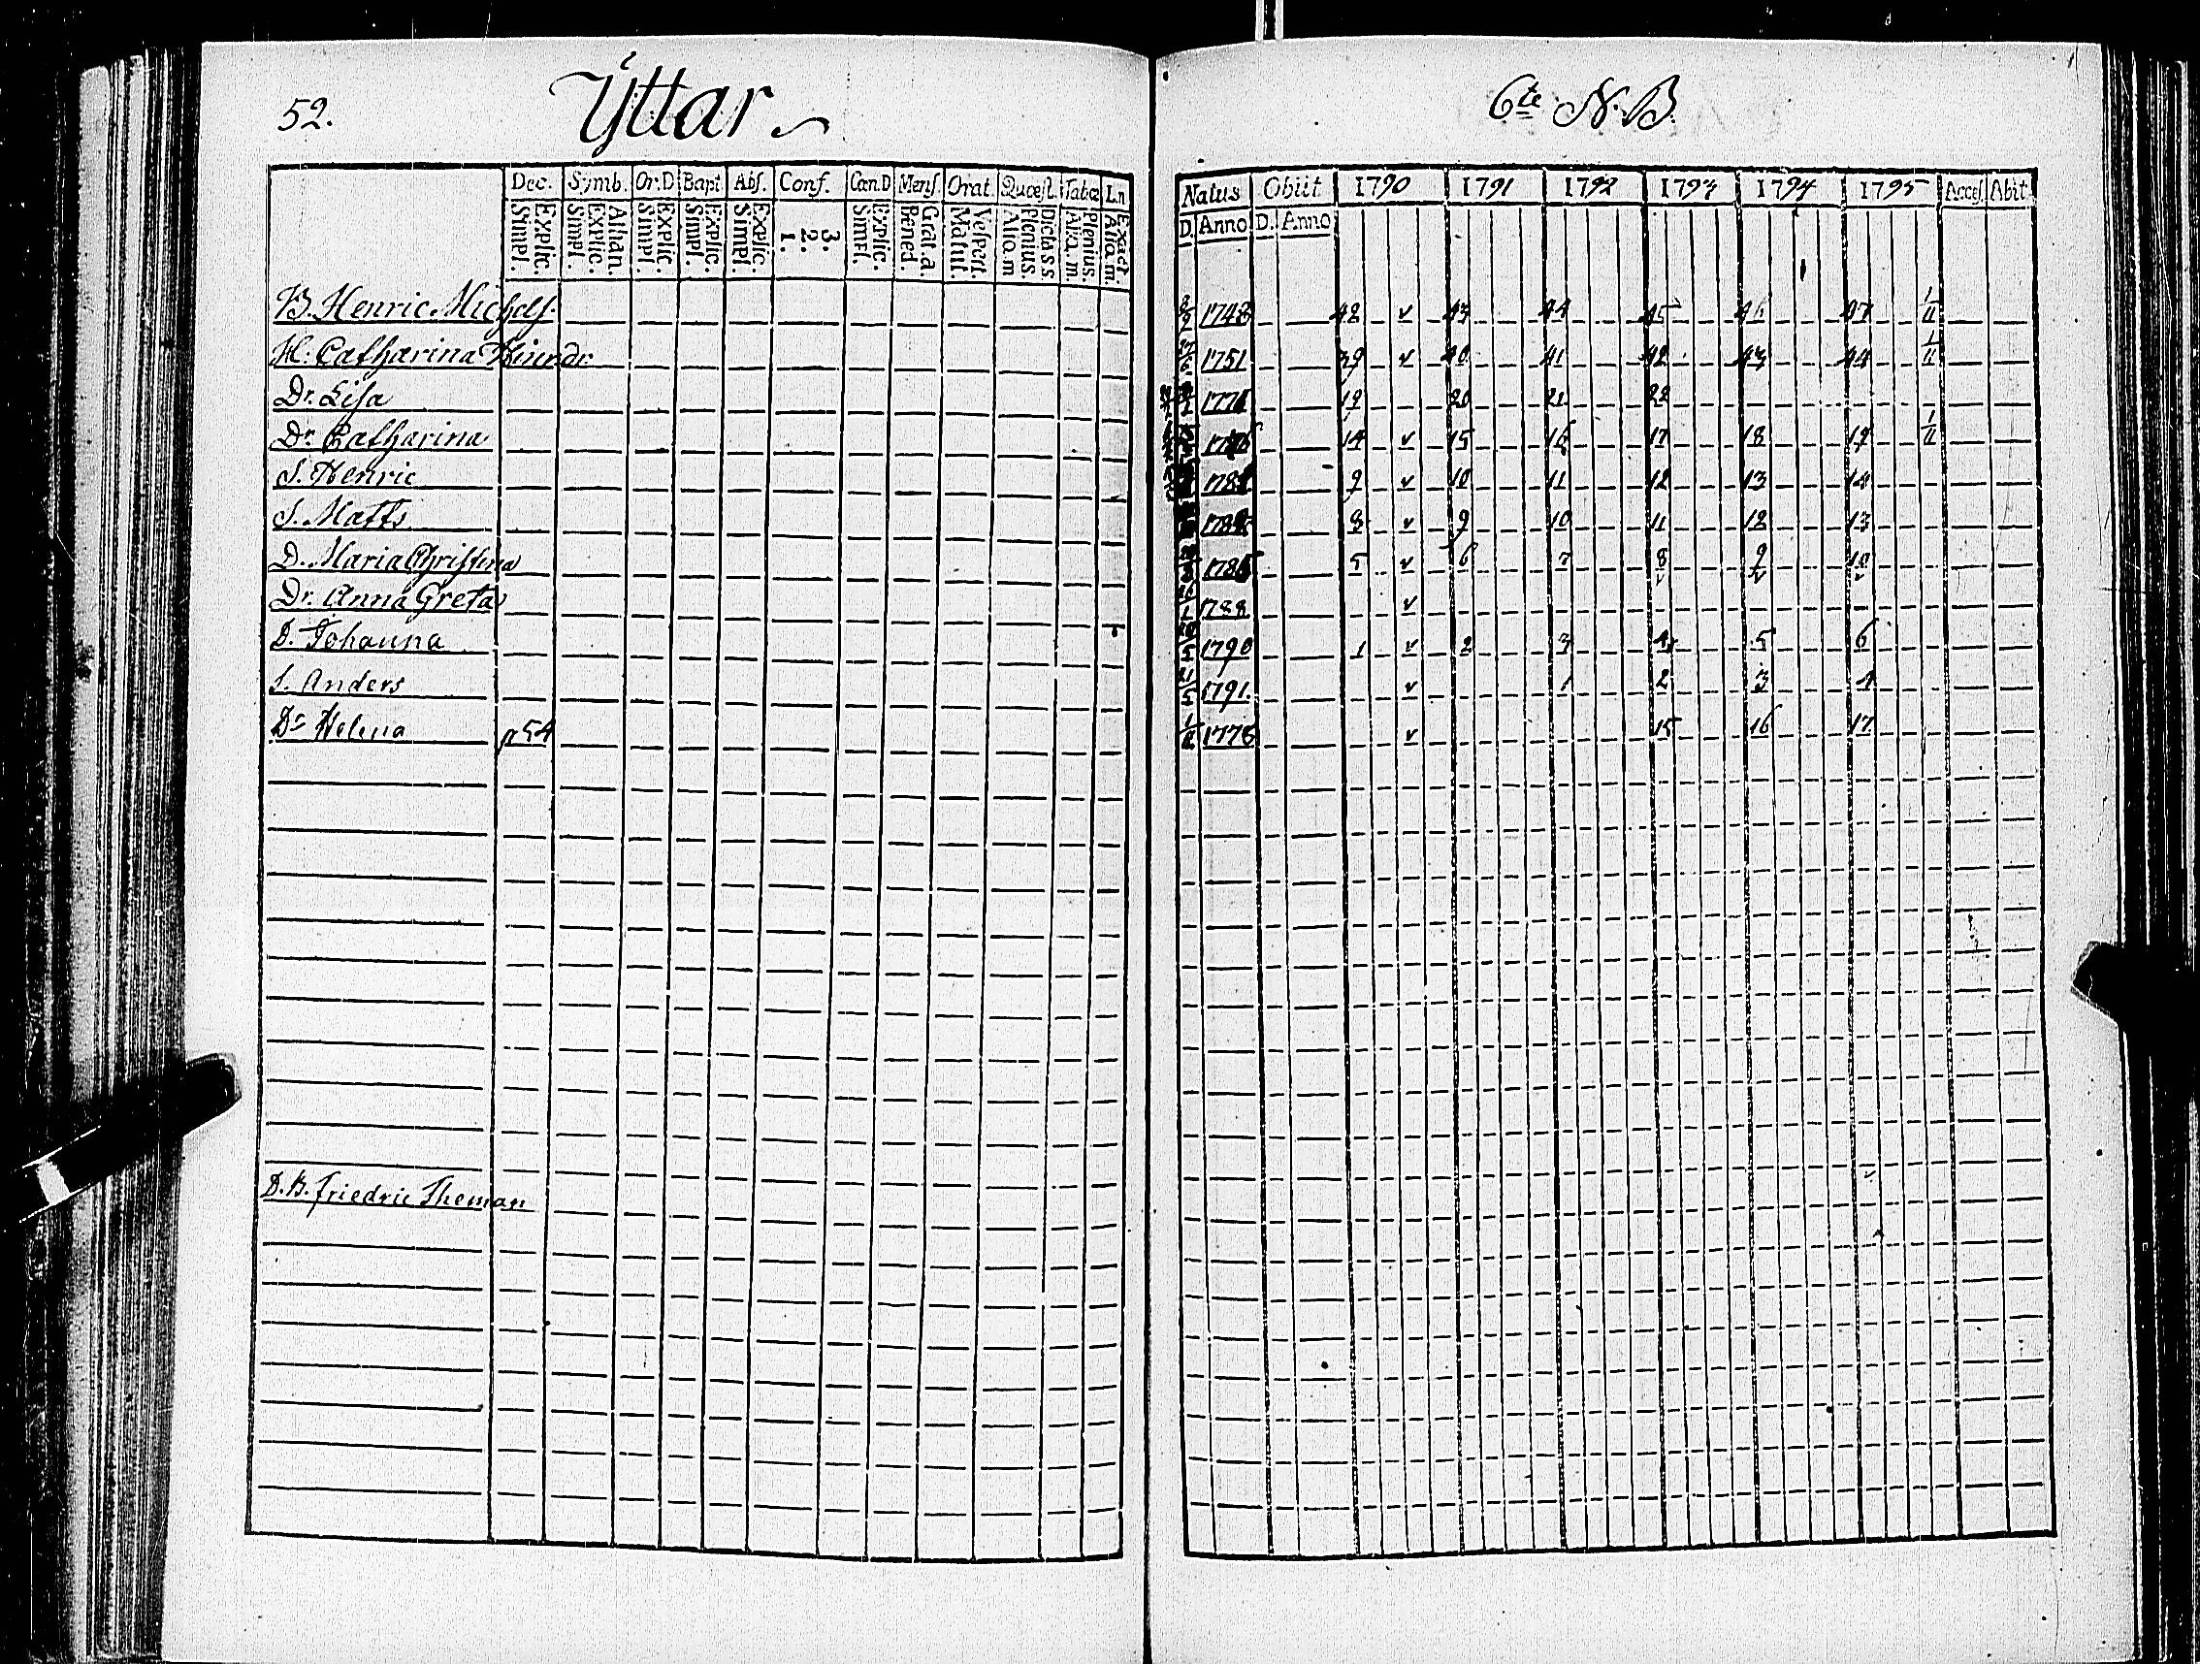 52. Ÿttar
6te N.B.
Dec. Symb. Or.D Bapt. Abs. Conf. Cœn.D Mens. Orat. Quæst. Tabæ Ln
Simpl. Explic. Simpl. Explic. Athan. Simpl. Explic. Simpl. Explic. Simpl. Explic. 1. 2. 3. Simpl. Explic. Bened. Grat. a. Matut. Vespert. Aliq. m Plenius. Dictass. Aliq. m. Plenius. Aliq. m. Exact
Natus Obiit 1790 1791 1792 1793 1794 1795 Acces Abit
D. Anno D. Anno
B. Henric Michels. 1748 42 v 43 44 45 46 47 1/11
H. Catharina Hindr. 1751 39 v 40 41 42 43 44 1/11
Dr. Lisa 1771 19 20 21 22
Dr. Catharina 1776 14 v 15 16 17 18 19 1/11
S. Henric 1781 9 v 10 11 12 13 14
S. Matts 8 v 9 10 11 12 13
D. Maria Christina 1785 5 v 6 7 8 9 10
Dr. Anna Greta 1788. v v v v
D. Johanna 1790 1 v 2 3 4 5 6
S. Anders 21/5 1791. v 1 2 3 4
Dr Helena p 54 1778 v 15 16 17
D.B. Friedric Theman